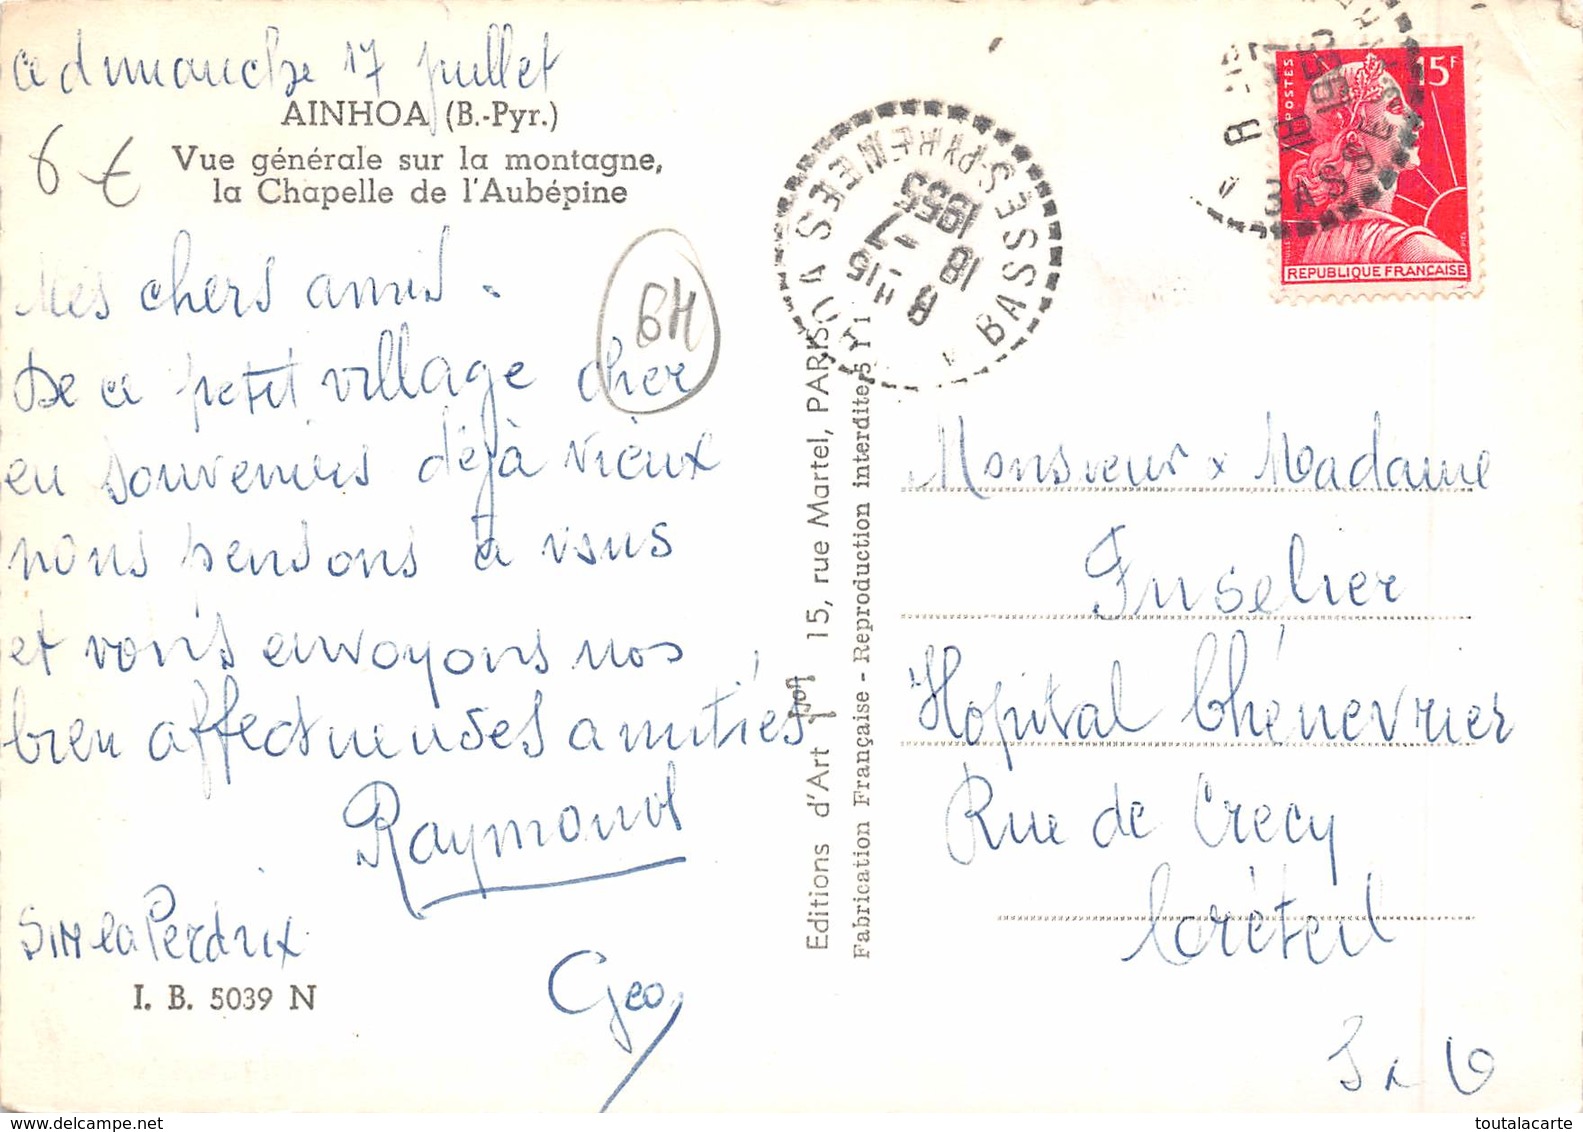 ce dimanche 17 juillet
AINHOA (B.-Pyr.)
Vue générale sur la montagne,
la Chapelle de l'Aubépine
6 €
64
Mes chers amis.
De ce petit village cher
en souvenirs déjà vieux
nous pensons à vous
et vous envoyons nos
bien affectueuses amitiés
Raymond
Geo
Perdrix
I. B. 5039 N
Editions d'Art 15, rue Martel, PARIS
Fabrication Française - Reproduction interdite
8 H -15
18 -7
1955
BASSES-PYRENEES
POSTES
15F
REPUBLIQUE FRANÇAISE
Monsieur x Madame
Fuselier
Hopital Chénevrier
Rue de Crecy
Créteil
www.delcampe.net
toutalacarte